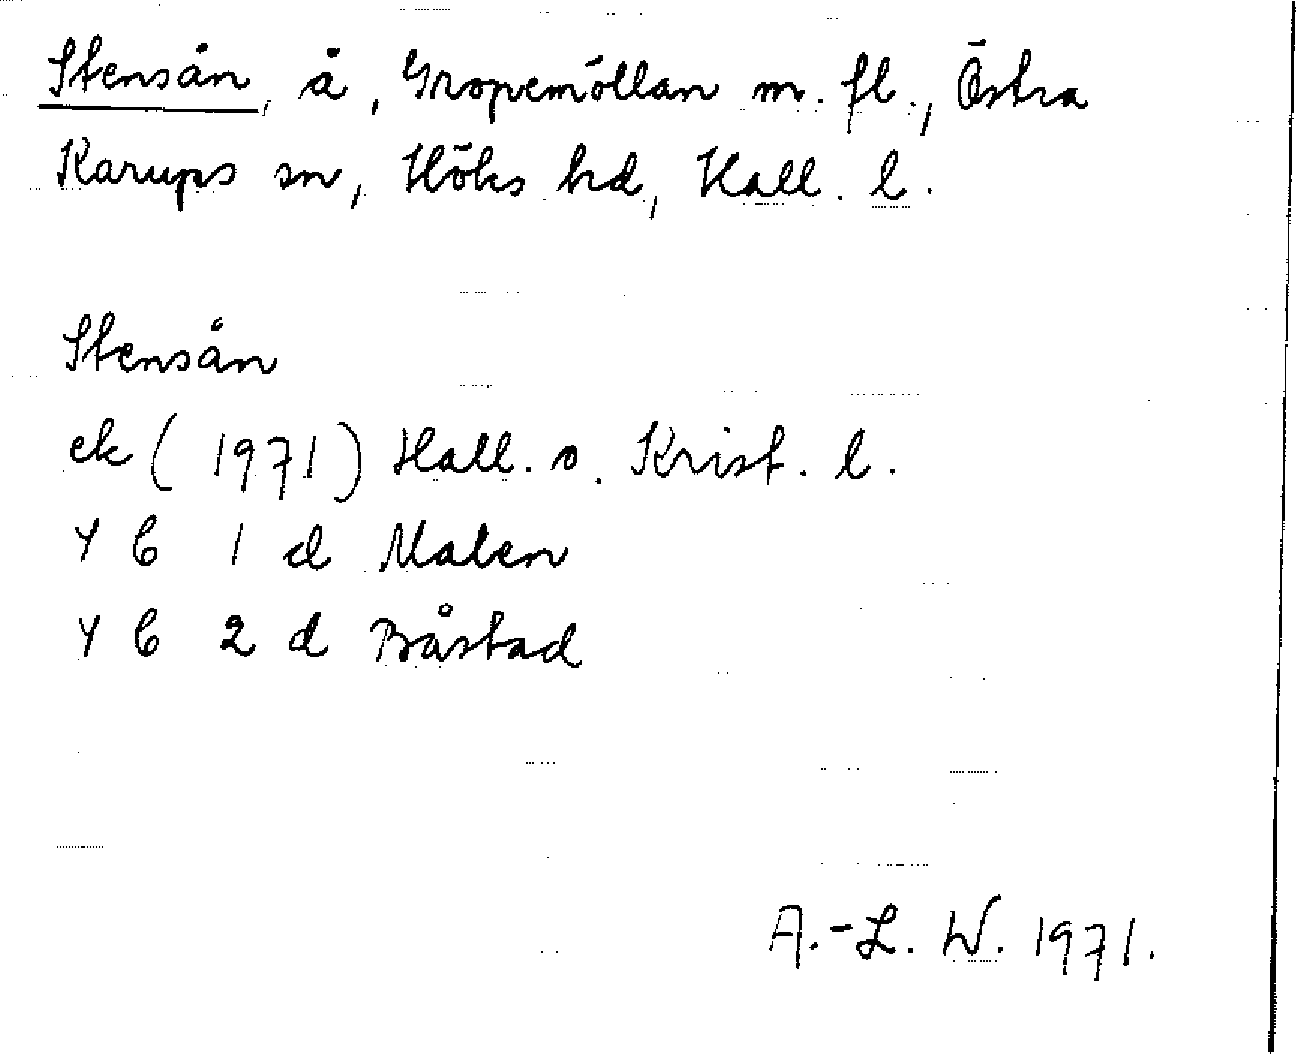 Stensån, å, Gropemöllan m. fl., Östra
Karups sn, Höks hd, Hall. l.
Stensån
ek (1971) Hall. o. Krist. l.
4 C 1 d Malen
4 C 2 d Båstad
A.-L. W. 1971.